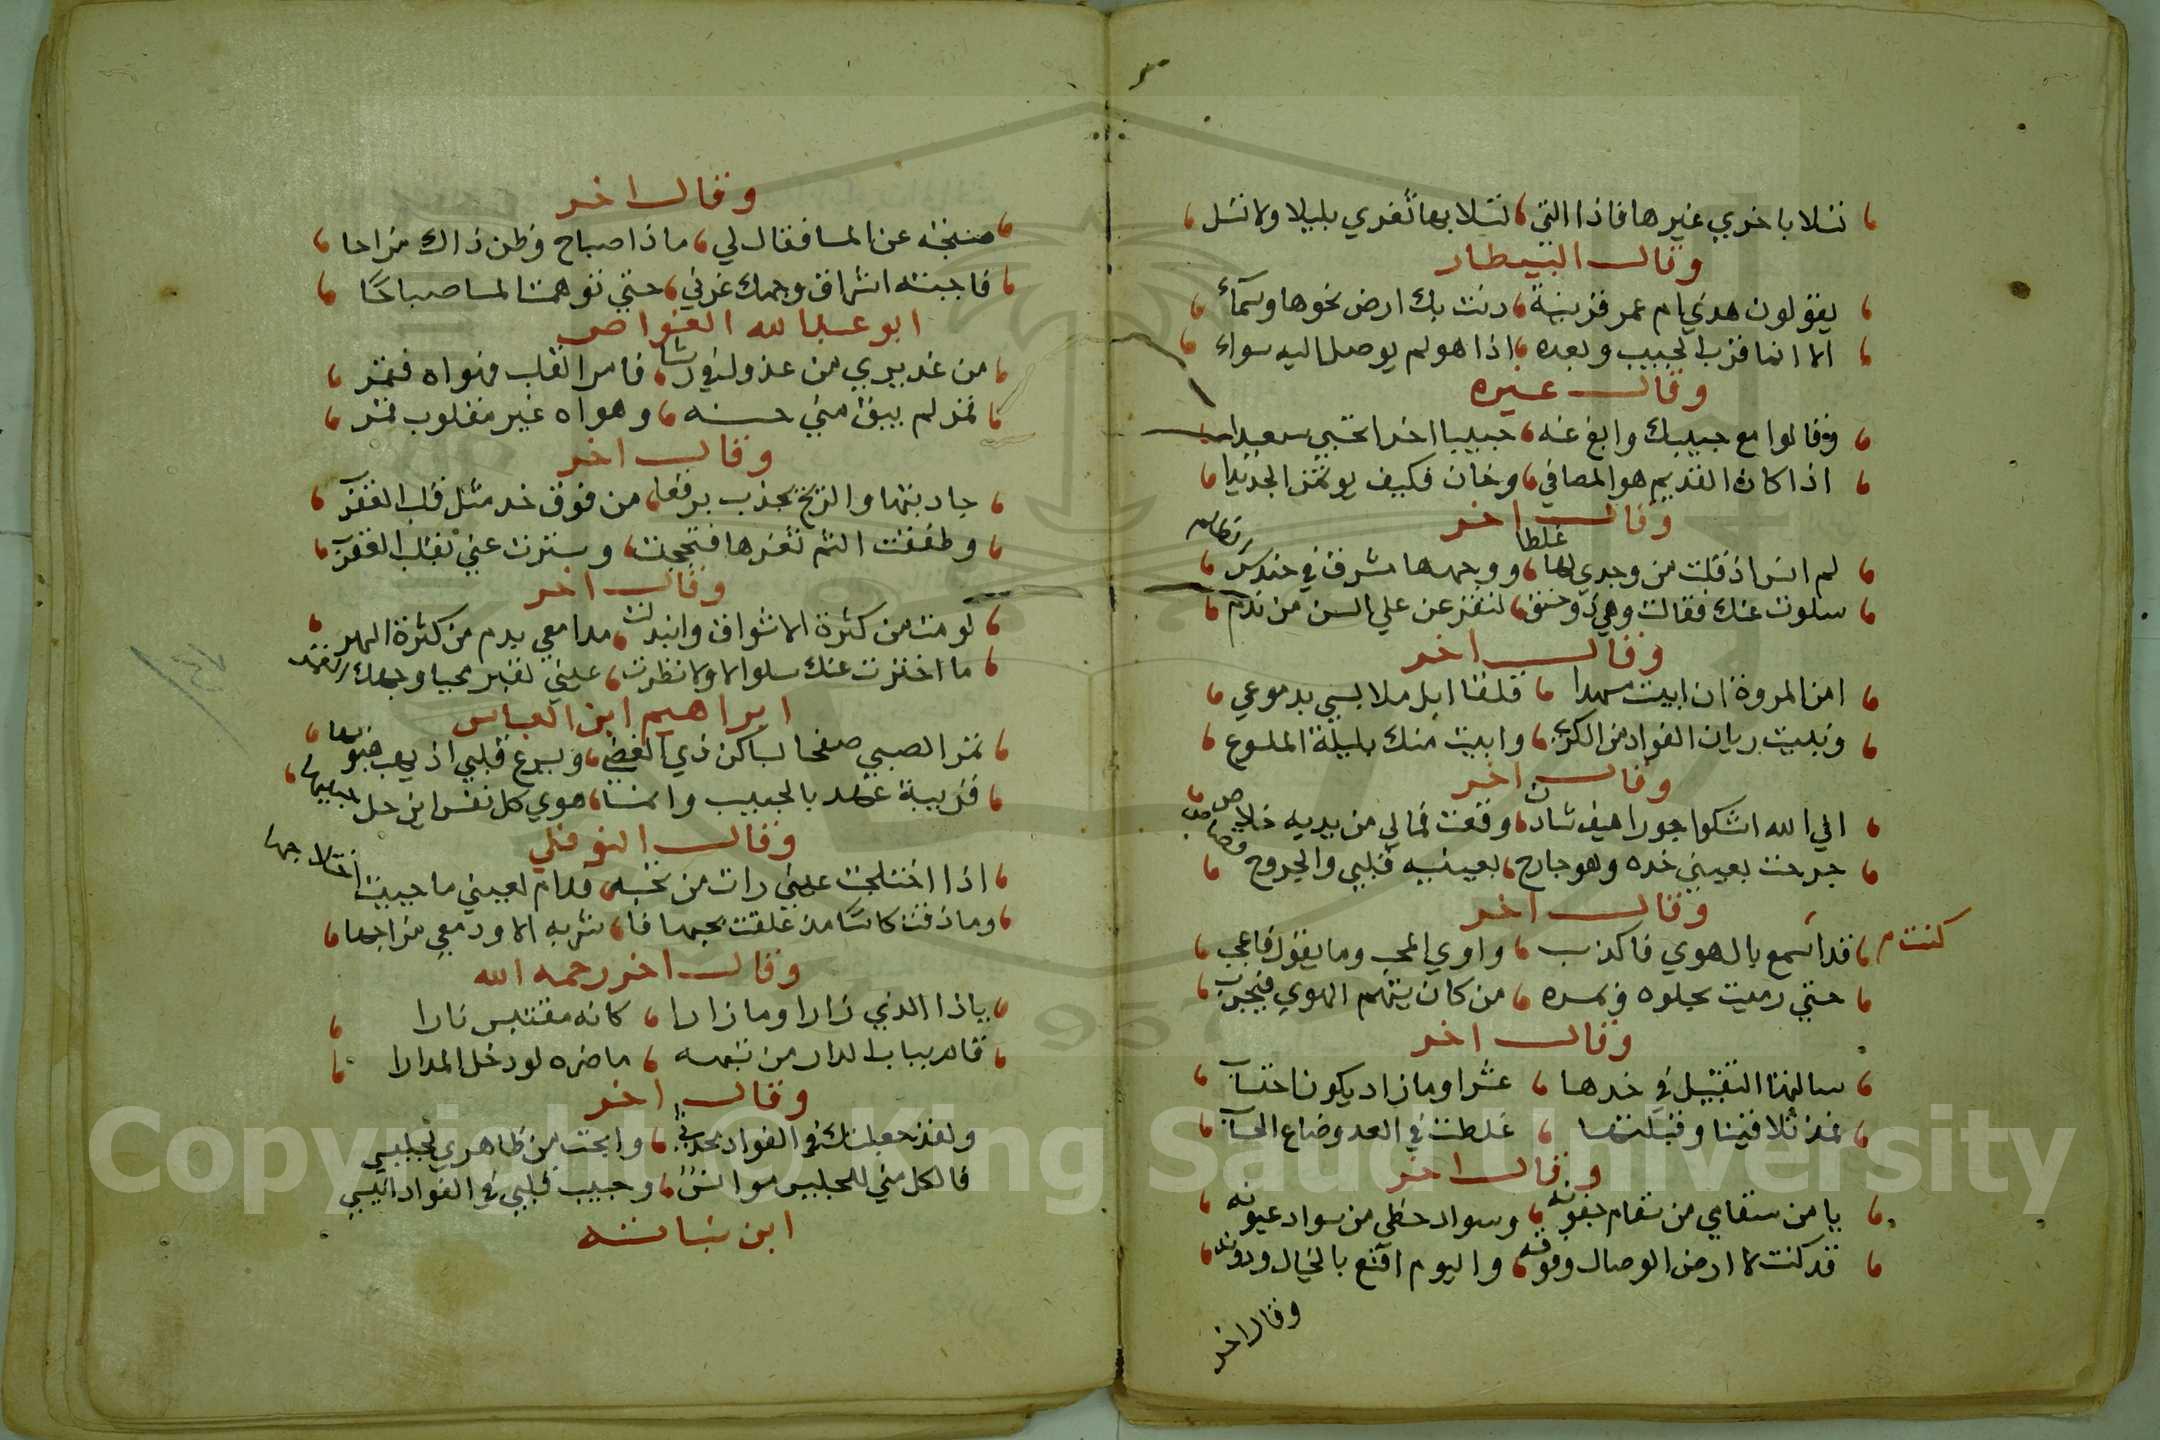 تسلا باخري غيرها فاذا التي تسلا بها تغري بليلا ولا تسل
وقال البيطار
يقولون هذي ام عمر قريبة دنت بك ارض نحوها وسمآء
الا انما قرب الحبيب وبعده اذا هو لم يوصل اليه سواء
وقال غيره
وقالوا مع حبيبك وابغ عنه حبيبا اخرا تحتبي سعيدا
اذا كان القديم هو المصافي وخان فكيف يوتمن الجديدا
وقال اخر
لم انس اذ قلت من وجدي لها غلطا ووجهها مشرق في حندس
سلوت عنك فقالت وهي ذو حنق لتقرعن علي السن من ندم
وقال اخر
امن المروة ان ابيت مسهدا قلقا ابل ملابسي بدموعي
وتبيت ريان الفواد من الكري وابيت منك بليلة الملسوع
وقال اخر
الي الله اشكوا جور اهيف شادن وقعت فمالي من يديه خلاص
جرحت بعيني خده وهو جارح بعينيه قلبي والجروح قصاص
وقال اخر
كنت م
قد اسمع بالهوي فاكذب واري المحب وما يقول فاعجب
حتي رميت بحلوه وبمره من كان يتهم الهوي فيجرب
وقال اخر
سالتها التقبيل في خدها عشرا وما زاد يكون احتساب
فمذ تلاقينا وقبلتها غلطت في العد وضاع الحساب
وقال اخر
يا من سقامي من سقام جفونه وسواد حظي من سواد عيونه
قد كنت لا ارض الوصال وفوقه واليوم اقنع بالخيال ودونه
وقال اخر
وقال اخر
صبحته عن المسا فقال لي ماذا صباح وظن ذاك مزاحا
فاجبته اشراق وجهك غرني حتي توهمت المسا صباحا
ابو عبد الله الغواص
من غديري من عذولي في رشا قامر القلب فهواه فقمر
قمر لم يبق مني حسنه وهواه غير مقلوب قمر
وقال اخر
جاذبتها والريح تجذب برقعا من فوق خد مثل قلب العقرب
وطفقت الثم ثغرها فتحجبت وسترت عني بقلب العقرب
وقال اخر
لو مت من كثرة الاشواق وابتدلت مدامعي بدم من كثرة السهر
ما اخترت عنك سلوا لا ولا نظرت عليني لغير محيا وجهك
ابراهيم ابن العباس
تمر الصبي صفحا بساكن ذي الغضي ويبرع قلبي اذ يهب هبوبها
قريبة عهد بالحبيب وانما هوي كل نفس اين حل حبيبها
وقال النوفلي
اذا اختلجت عيني رات من تحبه فدام لعيني ما حييت اختلاجها
وما ذقت كاسا مذ علقت بحبها فا شربه الا ودمعي مزاجها
وقال اخر رحمه الله
ياذا الذي زارا وما زارا كانه مقتبس نارا
قام بباب الدار من تيهه ما ضره لو دخل الدارا
وقال اخر
ولقد جعلتك في الفواد محدثي وابحت من ظاهري لجليسي
فالكل مني للجليس موانس وحبيب قلبي في الفواد انيسي
ابن نباتة
Copyright © King Saud University